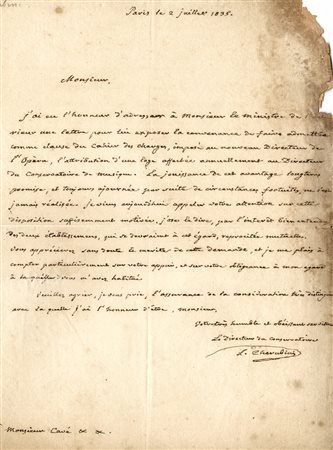 Paris le 2 juillet 1835.
Monsieur,
J'ai eu l'honneur d'adresser à Monsieur le Ministre de l'inté
rieur une lettre pour lui exposer la convenance de faire admettre
comme clause du Cahier des charges, imposé au nouveau Directeur de
l'Opéra, l'attribution d'une loge affectée annuellement au Directeur
du Conservatoire de musique. La jouissance de cet avantage longtems
promise, et toujours ajournée par suite de circonstances fortuites, ne s'est
jamais réalisée. Je viens aujourd'hui appeler votre attention sur cette
disposition suffisamment motivée, j'ose le dire, par l'intérêt bien entendu
des deux établissemens, qui se devraient à cet égard, réciprocité mutuelle.
Vous apprécierez sans doute le mérite de cette demande, et je me plais à
compter particulièrement sur votre appui, et sur votre obligeance à mon égard
à laquelle vous m'avez habitué.
Veuillez agréer, je vous prie, l'assurance de la considération très distinguée
avec laquelle j'ai l'honneur d'être, monsieur,
Votre très humble et obéissant serviteur
Le Directeur du Conservatoire
L. Cherubini
Monsieur Cavé &c &c.